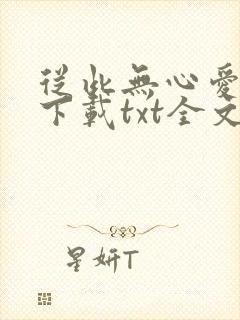 從此無心愛
下載txt全文
星妍T